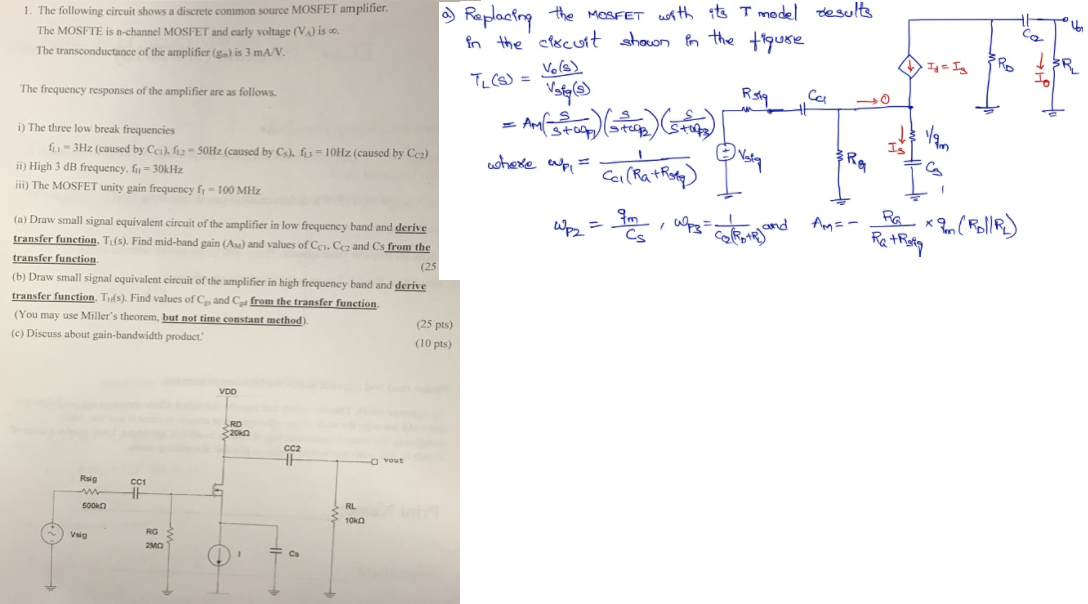 1. The following circuit shows a discrete common source MOSFET amplifier.
The MOSFTE is n-channel MOSFET and early voltage (VA) is ∞.
The transconductance of the amplifier (gm) is 3 mA/V.
The frequency responses of the amplifier are as follows.
i) The three low break frequencies
fL1 = 3Hz (caused by CC1), fL2 = 50Hz (caused by CS), fL3 = 10Hz (caused by CC2)
ii) High 3 dB frequency, fH = 30kHz
iii) The MOSFET unity gain frequency fT = 100 MHz
(a) Draw small signal equivalent circuit of the amplifier in low frequency band and derive
transfer function, TL(s). Find mid-band gain (AM) and values of CC1, CC2 and CS from the
transfer function.
(25
(b) Draw small signal equivalent circuit of the amplifier in high frequency band and derive
transfer function, TH(s). Find values of Cgs and Cgd from the transfer function.
(You may use Miller's theorem, but not time constant method).
(25 pts)
(c) Discuss about gain-bandwidth product.
(10 pts)
VDD
RD
20kΩ
CC2
vout
Rsig
CC1
500kΩ
RL
10kΩ
Vsig
RG
2MΩ
I
Cs
a) Replacing the MOSFET with its T model results
in the circuit shown in the figure
TL(s) = Vo(s) / Vsig(s)
= AM (s / s+ωp1) (s / s+ωp2) (s / s+ωp3)
where ωp1 = 1 / CC1(RG+Rsig)
ωp2 = gm / CS , ωp3 = 1 / C2(RD+RL) and AM = - RG / RG+Rsig × gm (RD||RL)
Rsig
CC1
0
Vsig
RG
Id = Is
Is
1/gm
Cs
RD
C2
Io
RL